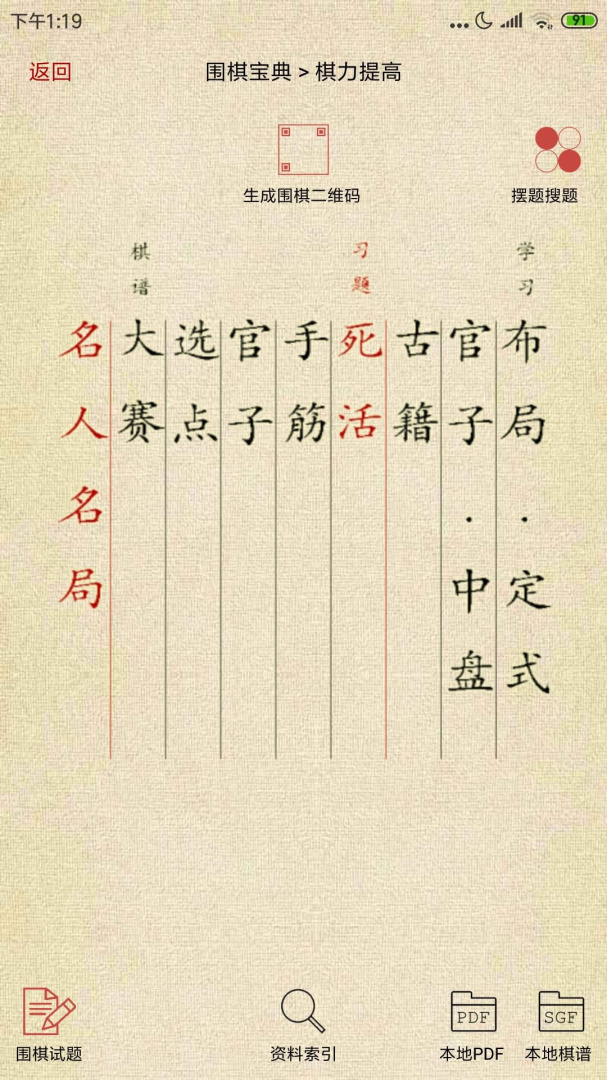 下午1:19
91
返回
围棋宝典 > 棋力提高
生成围棋二维码
摆题搜题
学习
布局·定式
官子·中盘
古籍
习题
死活
手筋
官子
选点
棋谱
大赛
名人名局
围棋试题
资料索引
PDF
本地PDF
SGF
本地棋谱